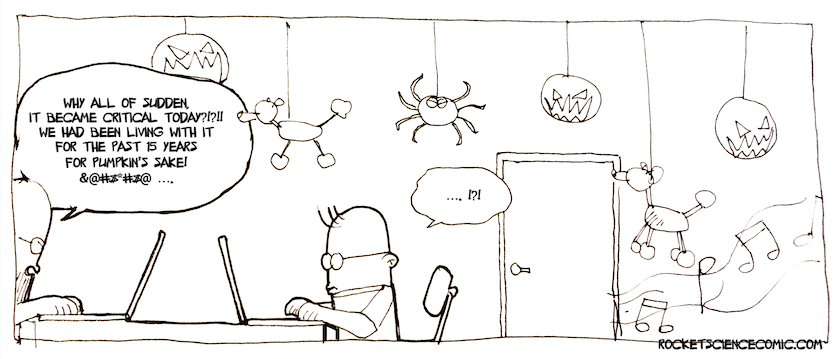 WHY ALL OF SUDDEN,
IT BECAME CRITICAL TODAY?!?!!
WE HAD BEEN LIVING WITH IT
FOR THE PAST 15 YEARS
FOR PUMPKIN'S SAKE!
&@#$*#$@ ....
.... !?!
ROCKETSCIENCECOMIC.COM